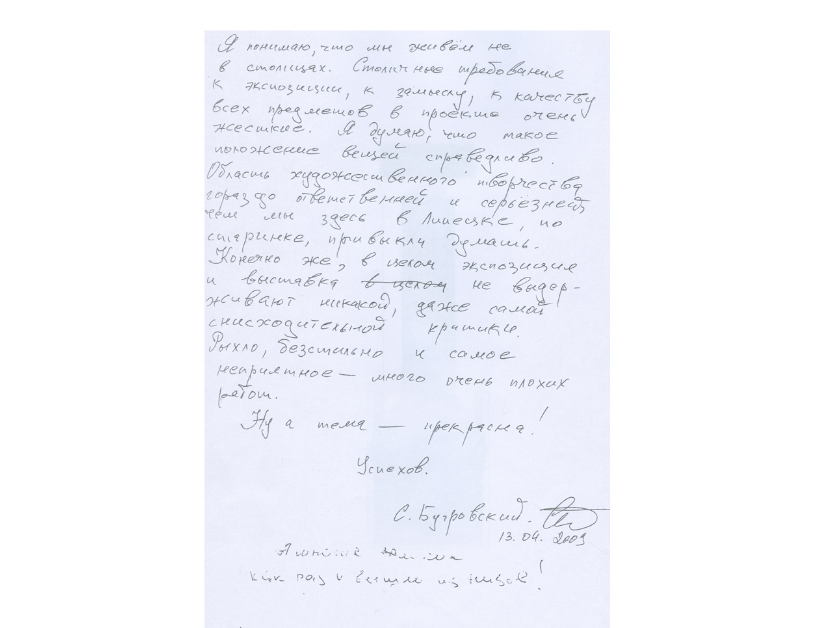 Я понимаю, что мы живём не
в столицах. Столичные требования
к экспозиции, к замыслу, к качеству
всех предметов в проекте очень
жесткие. Я думаю, что такое
положение вещей справедливо.
Область художественного творчества
гораздо ответственней и серьёзней,
чем мы здесь в Липецке, по
старинке, привыкли думать.
Конечно же, в целом экспозиция
и выставка в целом не выдер-
живают никакой, даже самой
снисходительной критики.
Рыхло, безстильно и самое
неприятное — много очень плохих
работ.
Ну а тема — прекрасна!
Успехов.
С. Бугровский.
13.04. 2009
как раз и